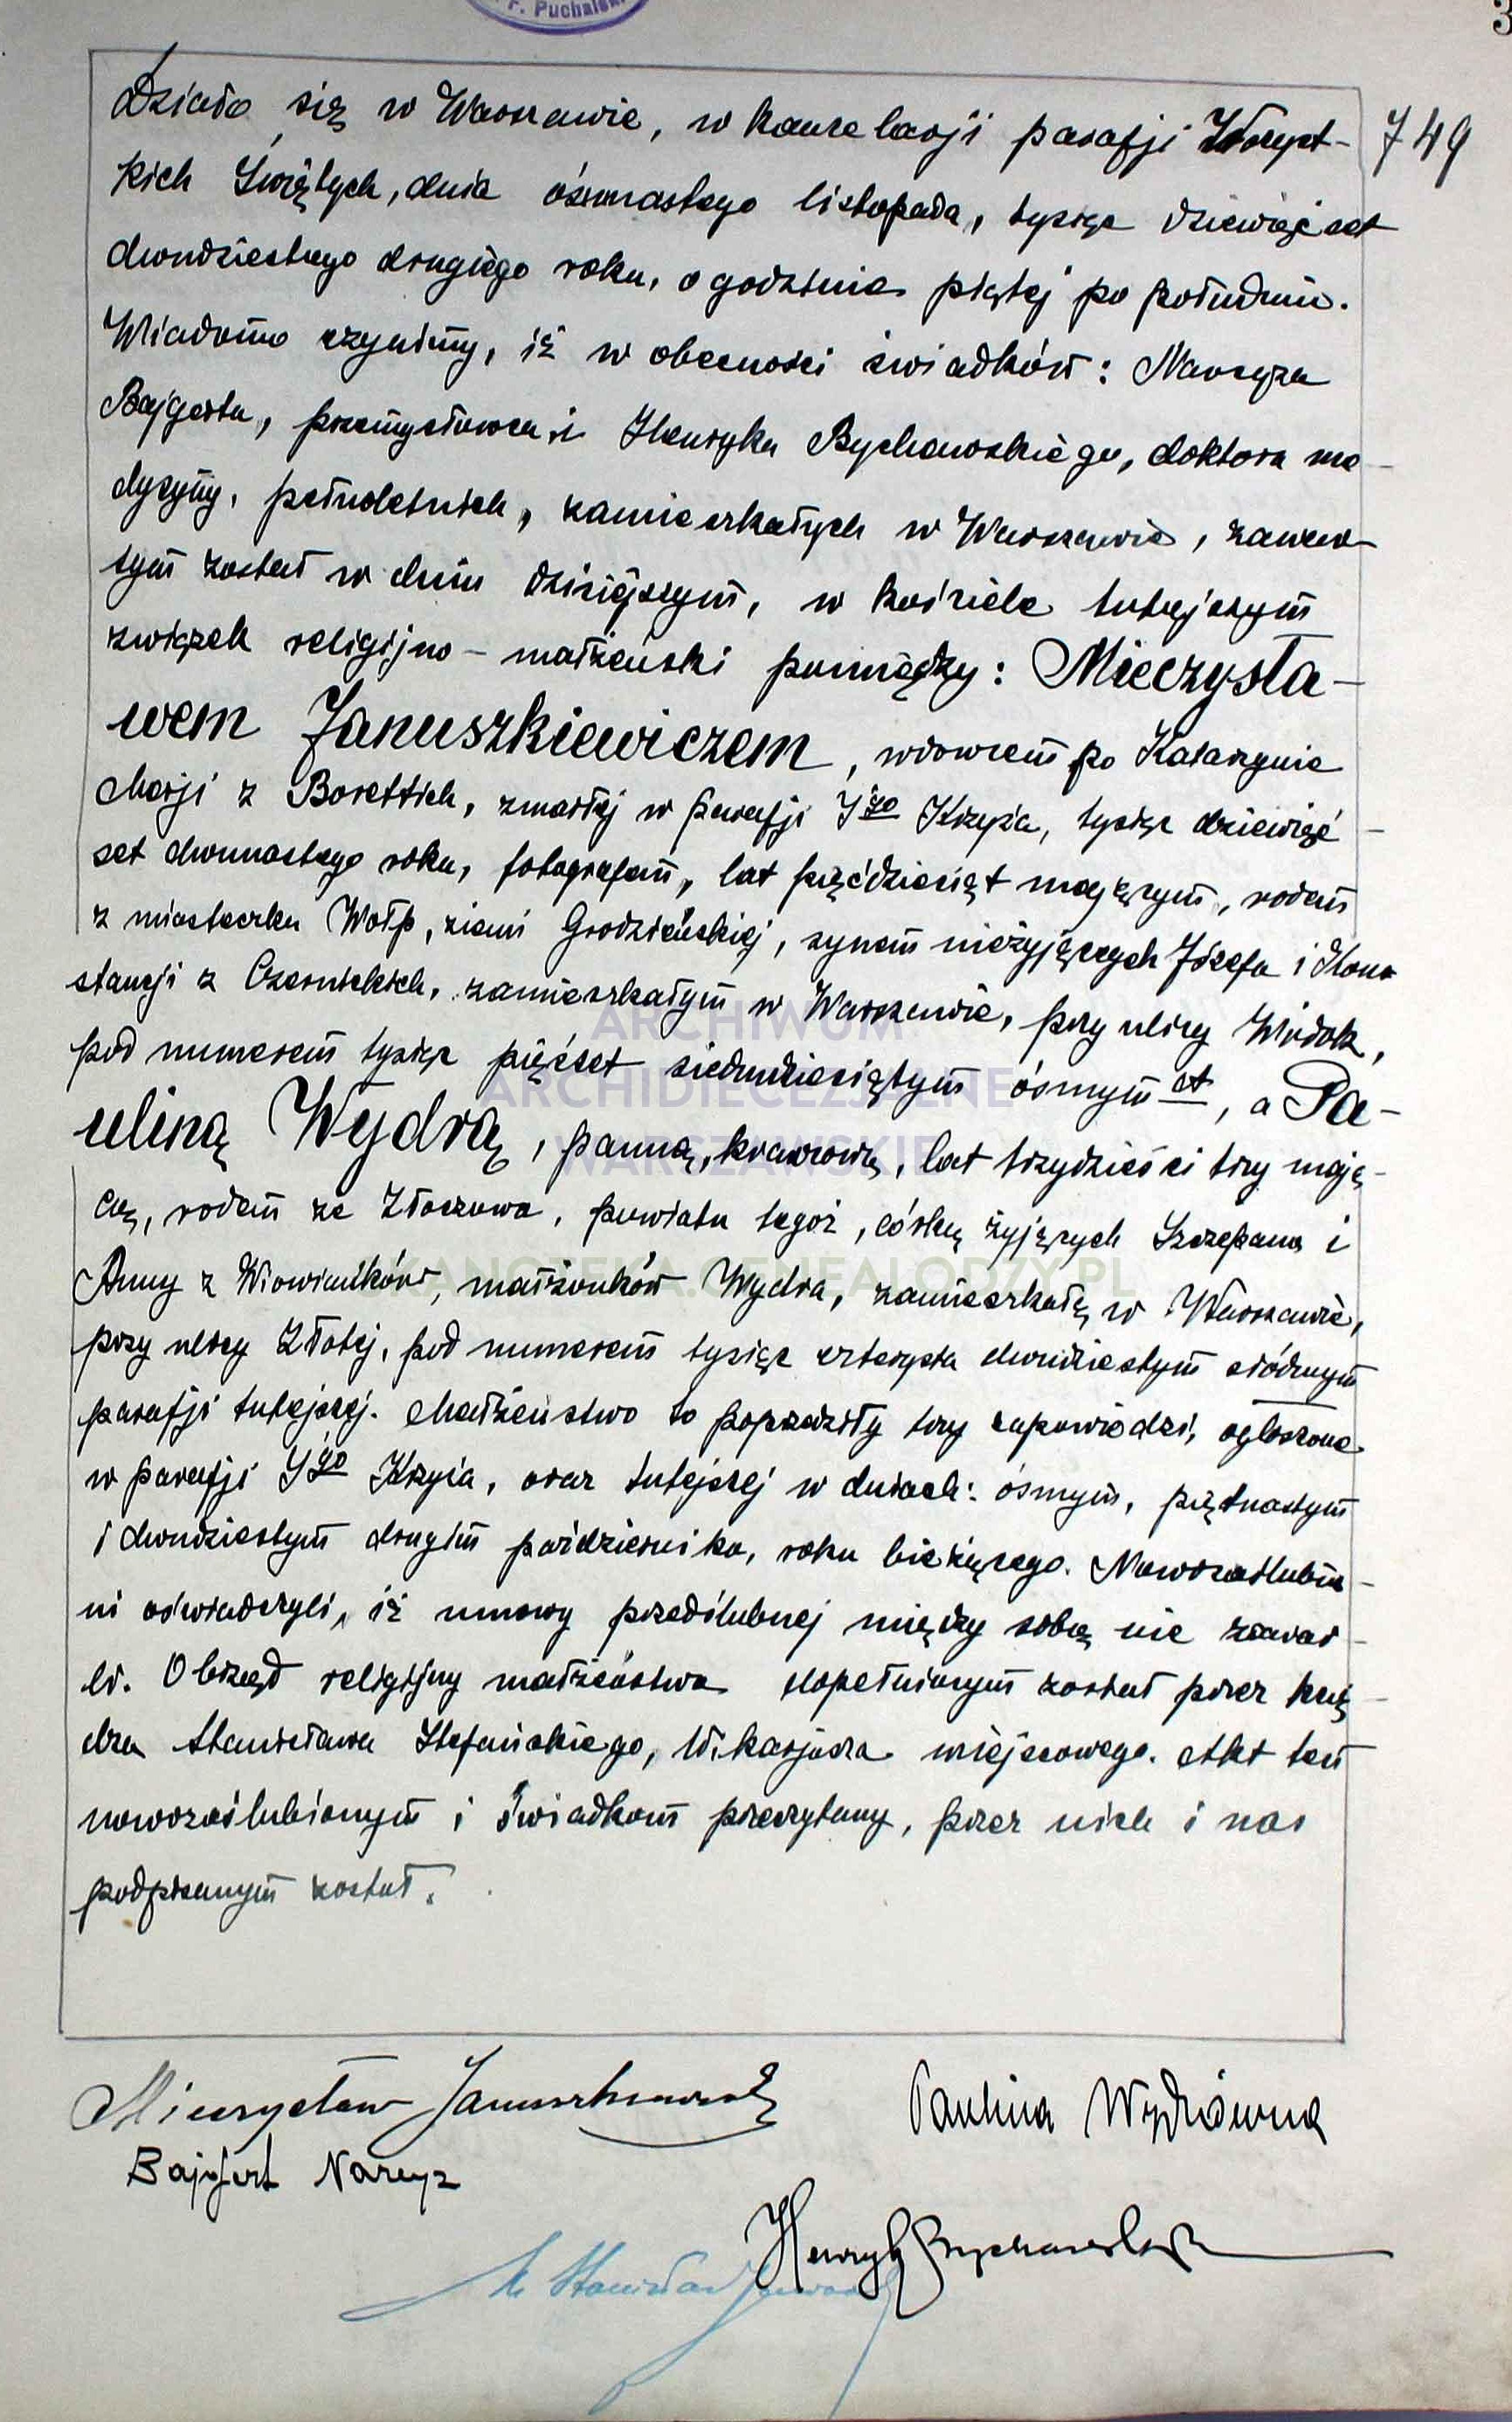 F. Puchalski
3
Działo się w Warszawie, w kancelarji parafji Wszyst-
749
kich Świętych, dnia ósmnastego listopada, tysiąc dziewięćset
dwudziestego drugiego roku, o godzinie piątej po południu.
Wiadomo czynimy, iż w obecności świadków: Narcyza
Bajgerta, przemysłowca i Henryka Bychowskiego, doktora me-
dycyny, pełnoletnich, zamieszkałych w Warszawie, zawar-
tym został w dniu dzisiejszym, w kościele tutejszym
związek religijno-małżeński pomiędzy: Mieczysła-
wem Januszkiewiczem, wdowcem po Katarzynie
Marji z Borettich, zmarłej w parafji Ś-go Krzyża, tysiąc dziewięć-
set dwunastego roku, fotografem, lat pięćdziesiąt mającym, rodem
z miasteczka Wołp, ziemi Grodzieńskiej, synem nieżyjących Józefa i Kon-
stancji z Czernickich, zamieszkałym w Warszawie, przy ulicy Widok,
pod numerem tysiąc pięćset siedmdziesiątym ósmym, a Pa-
uliną Wydrą, panną, krawcową, lat trzydzieści trzy mają-
cą, rodem ze Złoczowa, powiatu tegoż, córką żyjących Szczepana i
Anny z małżonków Wydra, zamieszkałą w Warszawie,
przy ulicy Złotej, pod numerem tysiąc czterysta dwudziestym siódmym
parafji tutejszej. Małżeństwo to poprzedziły trzy zapowiedzi, ogłoszone
w parafji Ś-go Krzyża, oraz tutejszej w dniach: ósmym, piętnastym
i dwudziestym drugim października, roku bieżącego. Nowozaślubie-
ni oświadczyli, iż umowy przedślubnej między sobą nie zawar-
li. Obrzęd religijny małżeństwa dopełnionym został przez księ-
dza Stanisława Stefańskiego, Wikarjusza miejscowego. Akt ten
nowozaślubionym i świadkom przeczytany, przez nich i nas
podpisanym został.
Mieczysław Januszkiewicz
Paulina Wydrówna
Bajgert Narcyz
Henryk Bychowski
Ks Stanisław
ARCHIWUM
ARCHIDIECEZJALNE
WARSZAWSKIE
GENEALODZY.PL